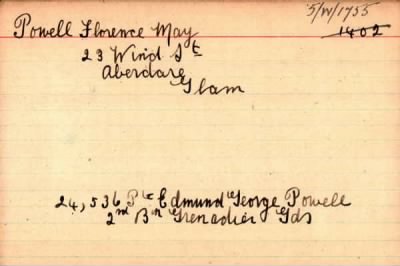 5/W/1755
1402
Powell Florence May
23 Wind St
Aberdare
Glam
24,536 Pte Edmund George Powell
2nd Bn Grenadier Gds